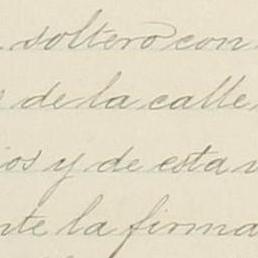 soltero con
de la calle
ios y de esta v
nte la firma